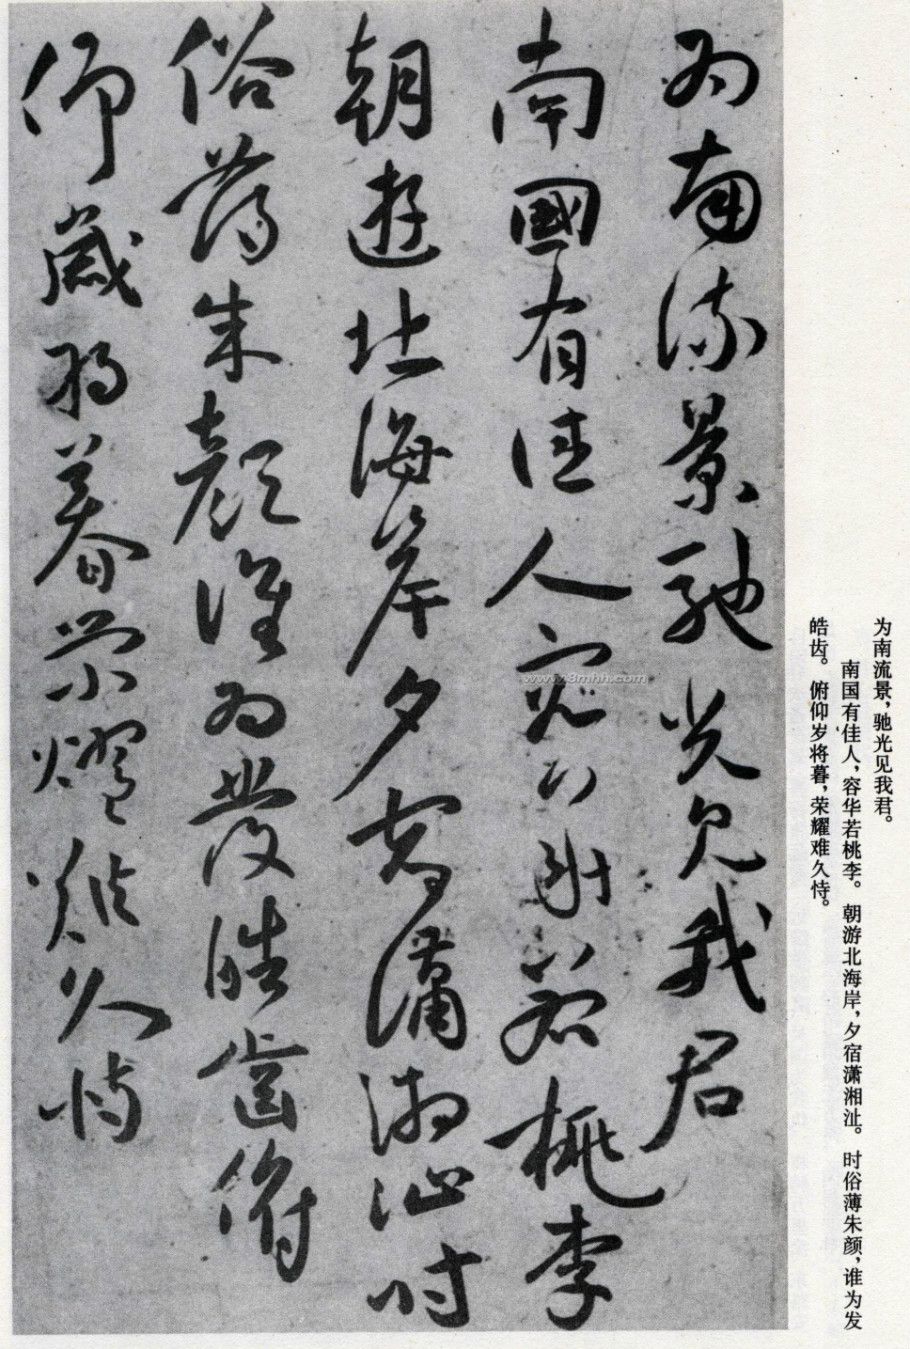 为南流景，驰光见我君。
南国有佳人，容华若桃李。朝游北海岸，夕宿潇湘沚。时俗薄朱颜，谁为发
皓齿。俯仰岁将暮，荣耀难久恃。
為南流景馳光見我君
南國有佳人容華若桃李
朝遊北海岸夕宿瀟湘沚時
俗薄朱顏誰為發皓齒俯
仰歲將暮榮燿難久恃